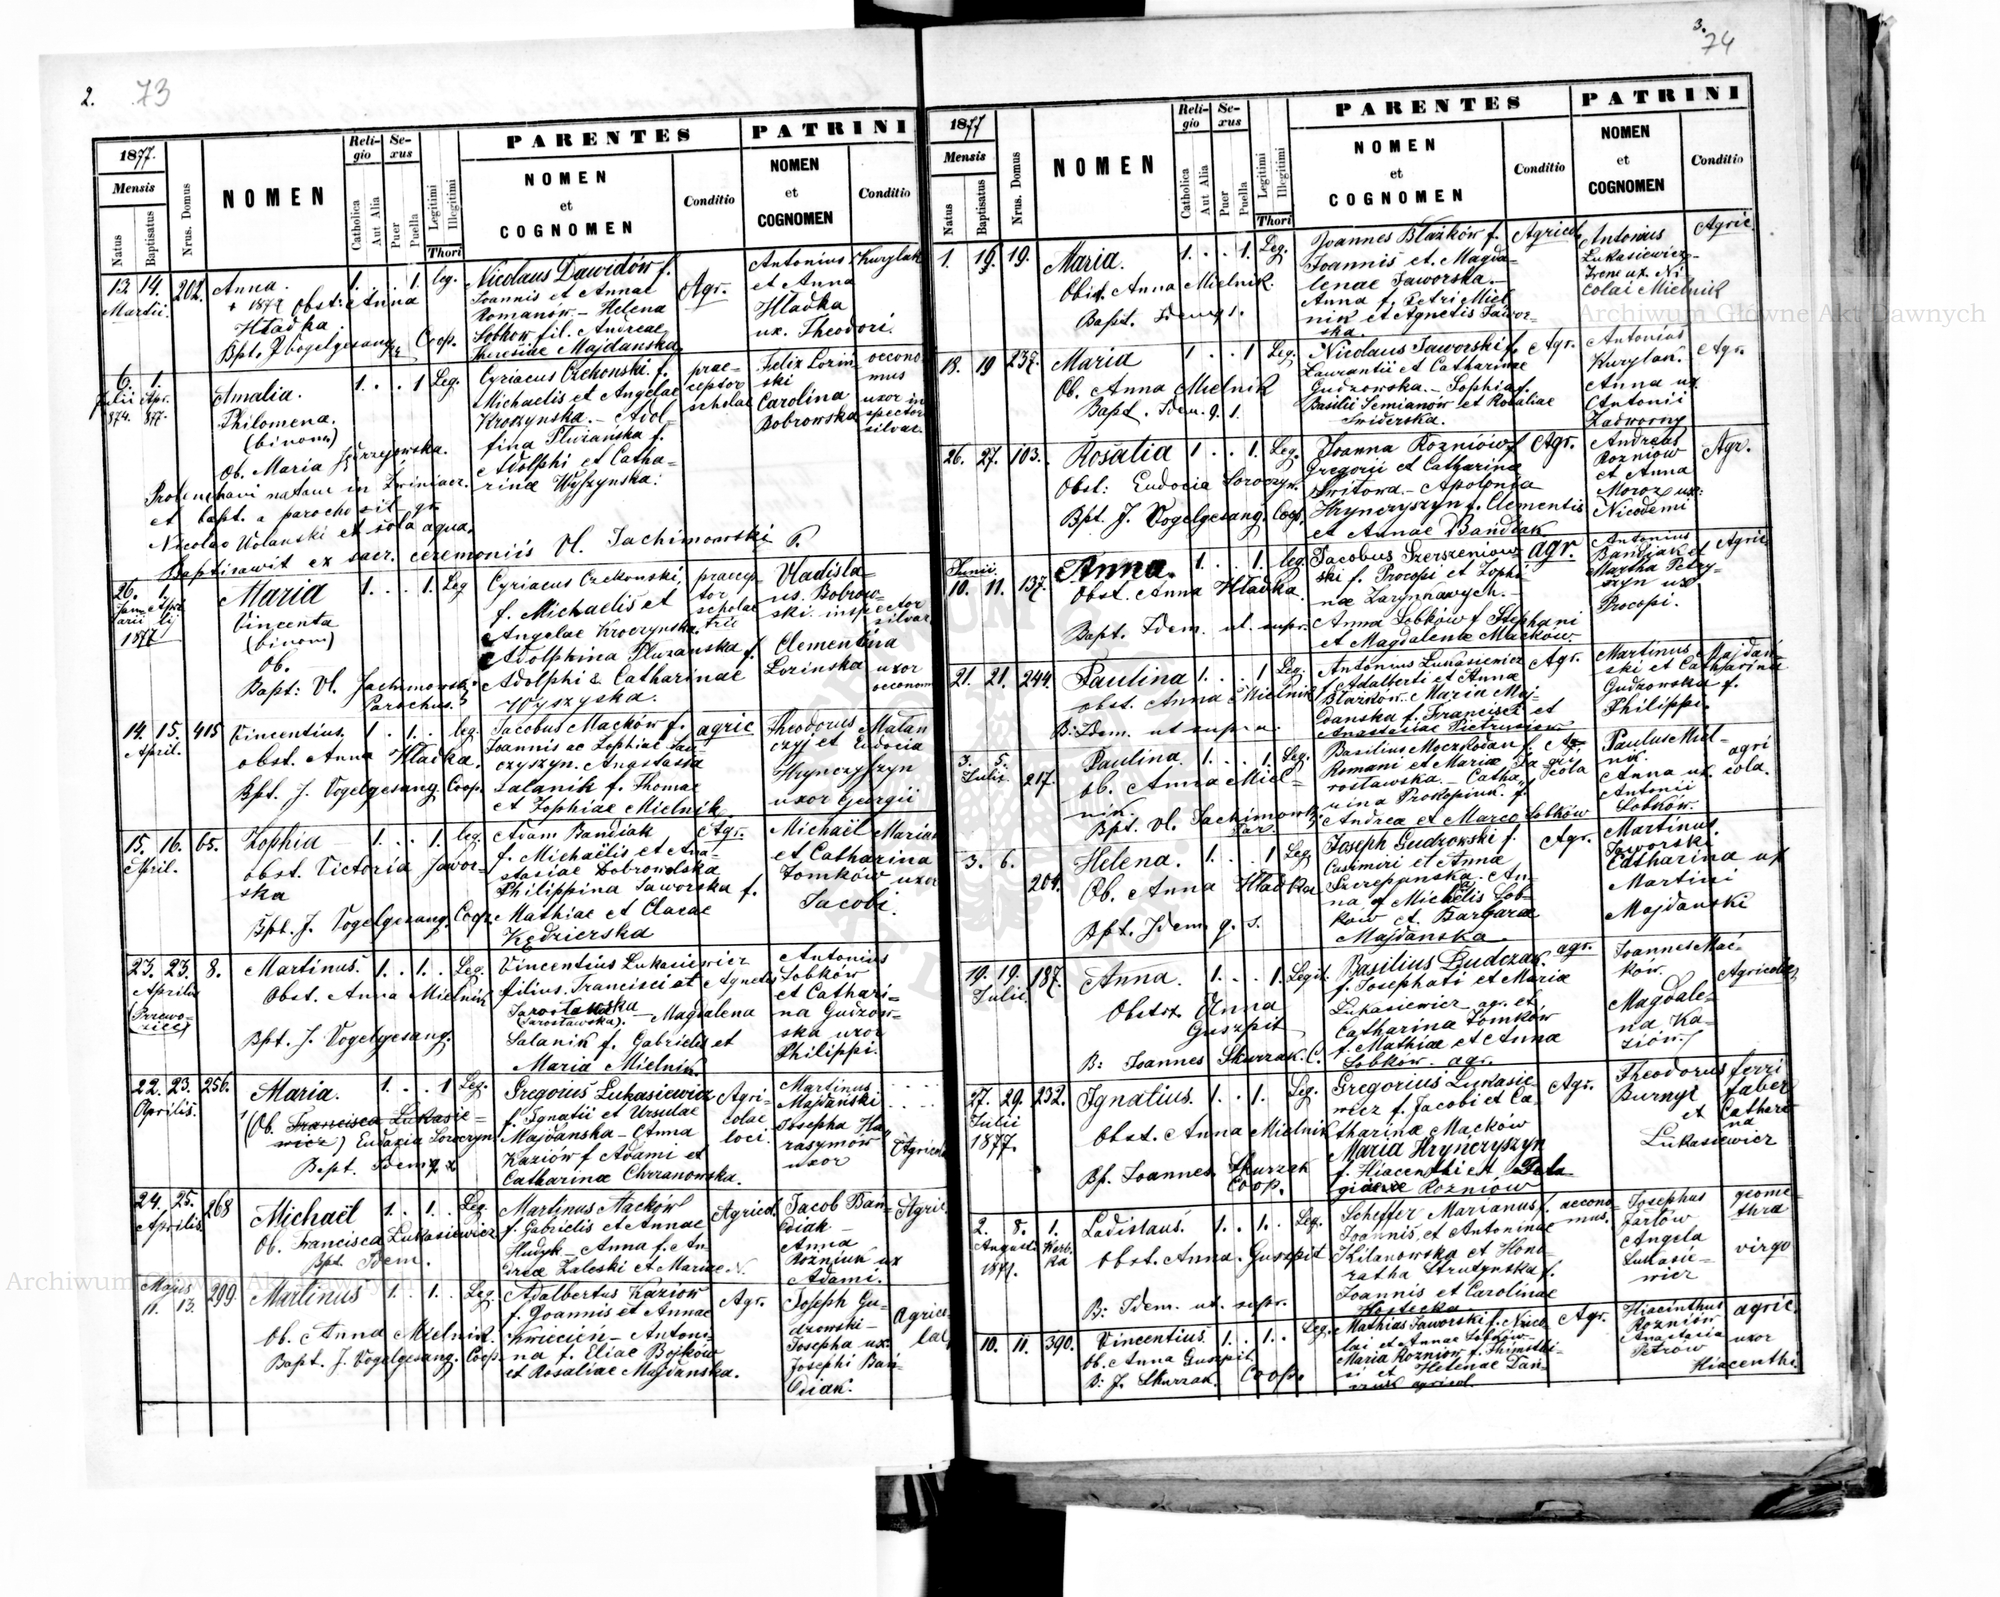 2. 73
1877.
Mensis
Natus
Baptisatus
Nrus. Domus
NOMEN
Religio
Catholica
Aut Alia
Sexus
Puer
Puella
Legitimi
Illegitimi
Thori
PARENTES
NOMEN
et
COGNOMEN
Conditio
PATRINI
NOMEN
et
COGNOMEN
Conditio
13. 14. 202. Anna. 1. . . 1. leg.
Martii. + 1877 Obst: Anna
Hładka.
Bpt. J. Vogelgesang Coop.
Nicolaus Dawidów f.
Joannis et Annae
Romanow - Helena
Łobkow fil. Andreae
Theresiae Majdańska
Agr.
Antonius Kurylak
et Anna
Hładka
ux. Theodori.
6. 1.
Julii Apr.
874. 877.
Amalia. 1. . . 1 Leg.
Philomena.
(binom)
Ob. Maria Jędrzejowska.
et bapt. a parocho rit. gr.
Nicolao Wolanski et sola aqua,
Baptisavit ex sacr. ceremoniis Vl. Jachimowski P.
Cyriacus Czekonski f.
Michaelis et Angelae
Kroczynska. - Adol-
fina Pluzańska f.
Adolphi et Catha-
rinae Wyszynska.
prae-
ceptor
scholae
Felix Lorin-
ski
Carolina
Bobrowska
oecono-
mus
uxor in-
spector
silvar.
26. 1.
Janu- Apri
arii lis
1877
Maria 1. . . 1. Leg
Vincenta
(binom)
Ob.
Bapt: Vl. Jachimowski
Parochus.
Cyriacus Czekonski,
f. Michaelis et
Angelae Kroczynska
Adolphina Pluzanska f.
Adolphi & Catharinae
Wyszyska.
praecep-
tor
scholae
Vladisla-
us Bobrow-
ski inspector
silvar
Clementina
Lorinska uxor
oeconom
14. 15. 415 Vincentius. 1 . 1. . leg.
April. obst. Anna Hładka.
Bpt. J. Vogelgesang Coop.
Jacobus Maćkow f.
Joannis ac Zophiae Jan-
czyszyn. Anastasia
Salanik f. Thomae
et Zophiae Mielnik
agric
Theodorus Matan
czyj et Eudocia
Hrynczyszyn
uxor Georgii
15. 16. 65. Zophia 1. . . 1. leg.
April. obst. Victoria Jawor-
ska
Bpt. J. Vogelgesang. Coop.
Adam Bandiak
f. Michaëlis et Ana-
stasiae Dobrowolska
Philippina Jaworska f.
Mathiae et Clarae
Kędzierska
Agr.
Michaël Marian
et Catharina
Tomków uxor
Jacobi.
23. 23. 8. Martinus. 1. . 1. . Leg.
Aprilis Obst. Anna Mielnik
Bpt. J. Vogelgesang.
Vincentius Łukasiewicz
filius Francisci et Agnetis
Jarosławska
(Jarosławska). - Magdalena
Salanik f. Gabrielis et
Maria Mielnik.
Antonius
Łobków
et Cathari-
na Gudzow-
ska uxor
Philippi.
22. 23. 256. Maria. 1. . . 1 Leg.
Aprilis. (Ob. Francisca Łukasie-
wicz) Eudoxia Soroczyn
Bapt. Idem q. s.
Gregorius Łukasiewicz
f. Ignatii et Ursulae
Majdanska - Anna
Kaziow f. Adami et
Catharina Chrzanowska.
Agri-
colae
loci.
Martinus
Majdański
Josepha Ha-
rasymów
uxor
Agricola
24. 25. 268 Michaël 1. . 1. . Leg.
Aprilis Ob. Francisca Łukasiewicz
Bpt. Idem.
Martinus Maćków
f. Gabrielis et Annae
Hudyk - Anna f. An-
dreae Zaleski et Mariae N.
Agricol.
Jacob Ban-
diak -
Anna
Rozniuk ux
Adami.
Agric.
Majus
11. 13. 299. Martinus 1. . 1. . Leg.
Ob. Anna Mielnik.
Bapt. J. Vogelgesang. Coop.
Adalbertus Kaziow
f. Joannis et Annae
Kwiecień - Antoni-
na f. Eliae Bojków
et Rosaliae Majdanska.
Agr.
Joseph Gu-
dzowski -
Josepha ux.
Josephi Ban-
diak.
Agrico-
lae
3.
74
1877
Mensis
Natus
Baptisatus
Nrus. Domus
NOMEN
Religio
Catholica
Aut Alia
Sexus
Puer
Puella
Legitimi
Illegitimi
Thori
PARENTES
NOMEN
et
COGNOMEN
Conditio
PATRINI
NOMEN
et
COGNOMEN
Conditio
1. 19. 19. Maria. 1. . . 1. Leg.
Obst. Anna Mielnik.
Bapt. Idem q. s.
Joannes Blazków f.
Joannis et Magda-
lenae Jaworska. -
Anna f. Petri Miel
nik et Agnetis Jawor-
ska.
Agricol.
Antonius
Łukasiewicz -
Irene ux. Ni
colai Mielnik
Agric.
18. 19 237. Maria 1 . . 1 Leg.
Ob. Anna Mielnik
Bapt. Idem. q. s.
Nicolaus Jaworski f.
Laurantii et Catharinae
Gudzowska. - Sophia f.
Basilii Semianów et Rosaliae
Swiderska.
Agr.
Antonius
Kurylan.
Anna ux.
Antonii
Zadworny
Agr.
26. 27. 103. Rosalia 1 . . 1. Leg.
Obst: Eudocia Soroczyn.
Bpt. J. Vogelgesang. Coop.
Joanna Rozniów f.
Gregorii et Catharinae
Switowa. - Apolonia
Hrynczyszyn f. Clementis
et Annae Bandiak
Agr.
Andreas
Rozniow
et Anna
Moroz ux.
Nicodemi
Agr.
Junii.
10. 11. 137. Anna. 1. . . 1. leg.
Obst. Anna Hładka.
Bapt. Idem. ut. supr.
Jacobus Szerszeniow-
ski f. Procopi et Zophi-
nae Zarynnawych. -
Anna Łobków f. Stephani
et Magdalenae Maćków
agr.
Antonius
Bandiak et
Martha Petry-
szyn ux
Procopi.
Agric.
21. 21. 244. Paulina 1. . . 1 Leg.
obst. Anna Mielnik
B: Idem. ut supra.
Antonius Łukasiewicz
f. Adalberti et Anna
Blazków. Maria Maj-
danska f. Francisci et
Anastasiae Pietrusiów
Agr.
Martinus Majdan-
ski et Catharina
Gudzowska f.
Philippi.
3. 5.
Julii. 217. Paulina. 1. . . 1. Leg.
Ob. Anna Miel-
nik.
Bpt. Vl. Jachimowski
Par.
Basilius Moczkodan f.
Romani et Mariae Ja-
rosławska. - Catha-
rina Prokopiuk f.
Andrea et Marco Łobków
Agri
cola
Paulus Miel-
nik.
Anna ux.
Antonii
Łobków.
agri
cola.
3. 6.
204. Helena. 1. . . 1 Leg
Ob. Anna Hładka
Bpt. Idem q. s.
Joseph Gudzowski f.
Casimiri et Anna
Szczepanska. An-
na f. Michelis Łob-
ków et Barbara
Majdanska
Agr.
Martinus.
Jaworski
Catharina ux
Martini
Majdanski
19. 19. 187. Anna. 1. . . 1. Legit.
Julii. Obstet. Anna
Guszpit
B: Joannes Skurzak. C.
Basilius Ludczak
f. Josephati et Maria
Łukasiewicz agr. et
Catharina Tomków
f. Mathiae et Anna
Łobków. agr.
agr.
Joannes Mać-
kow.
Magdale-
na Ka-
ziów.
Agricolae
27. 29. 232. Ignatius. 1. . 1. Leg.
Julii
1877. Obst. Anna Mielnik
Bp. Joannes Skurzak
Coop.
Gregorius Łukasie-
wicz f. Jacobi et Ca-
tharina Maćków
Maria Hrynczyszyn
f. Hiacenthi et Pela-
giae Rozniów
Agr.
Theodorus ferri
Burnyi faber
et Cathari-
na
Łukasiewicz
2. 8. 1. Ladislaus. 1. . 1. . Leg.
Augusti
1877.
Obst. Anna. Guszpit
B: Idem. ut. supr.
Scheffer Marianus f.
Joannis et Antoninae
Kilanowska et Hono-
ratha Strutynska f.
Joannis et Carolinae
Hostecka
oecono-
mus.
Josephus
Tarłów
Angela
Łukasie-
wicz
geome-
thra
virgo
10. 11. 390. Vincentius. 1. . 1. . Leg.
Ob. Anna Guszpit
B: J. Skurzak. Coop.
Mathias Jaworski f. Nico-
lai et Annae Łobków-
Maria Rozniow f. Thimothi-
si et Helenae Dan-
agricol.
Agr.
Hiacinthus
Rozniów
Anastasia
Petrów
agric.
uxor
Hiacenthi
Archiwum Główne Akt Dawnych
Archiwum Główne Akt Dawnych